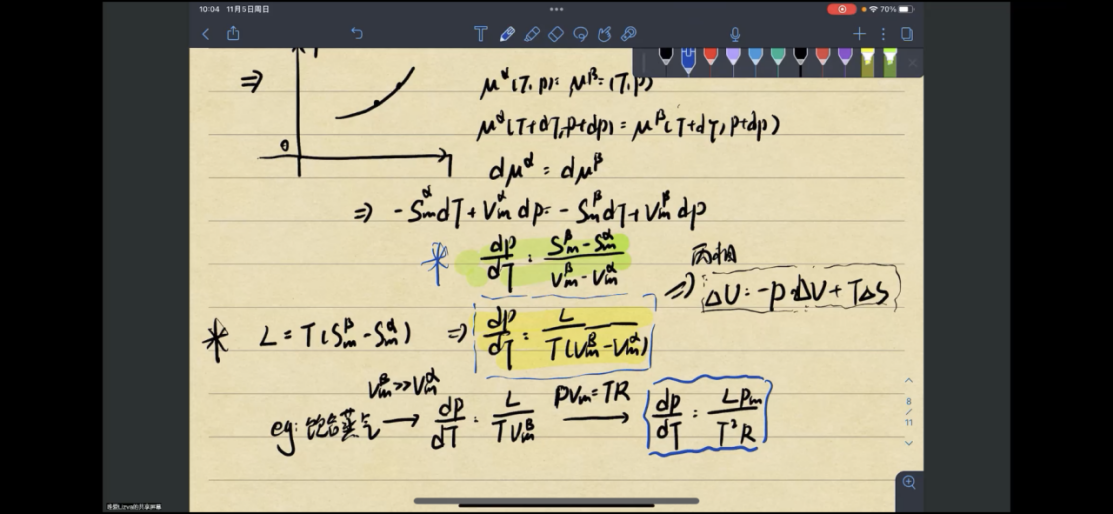 10:04 11月5日周日
70%
⇒
μ^α(T,p) = μ^β = (T,p)
μ^α(T+dT,p+dp) = μ^β(T+dT,p+dp)
0
T
dμ^α = dμ^β
⇒ -S_m^α dT + V_m^α dp = -S_m^β dT + V_m^β dp
* dp/dT = (S_m^β - S_m^α)/(V_m^β - V_m^α)
两相
⇒ ΔU = -p·ΔV + TΔS
* L = T(S_m^β - S_m^α) ⇒ dp/dT = L/(T(V_m^β - V_m^α))
V_m^β >> V_m^α
eg: 饱和蒸气 → dp/dT = L/(T V_m^β) pV_m = TR → dp/dT = L p_m/(T²R)
8
/
11